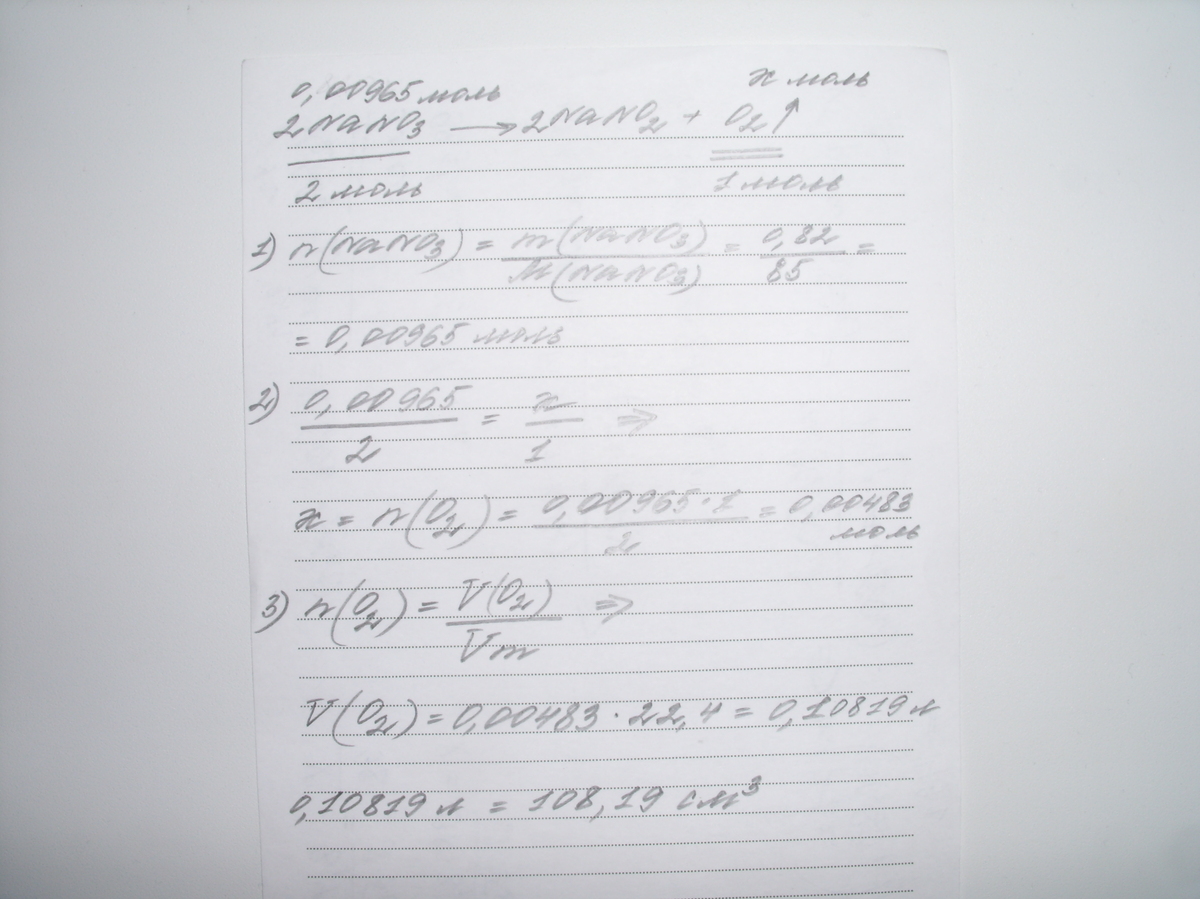 0,00965 моль x моль
2NaNO₃ → 2NaNO₂ + O₂↑
2 моль 1 моль
1) n(NaNO₃) = m(NaNO₃)/M(NaNO₃) = 0,82/85 =
= 0,00965 моль
2) 0,00965/2 = x/1 ⇒
x = n(O₂) = 0,00965·1/2 = 0,00483
моль
3) n(O₂) = V(O₂)/Vm ⇒
V(O₂) = 0,00483 · 22,4 = 0,10819 л
0,10819 л = 108,19 см³